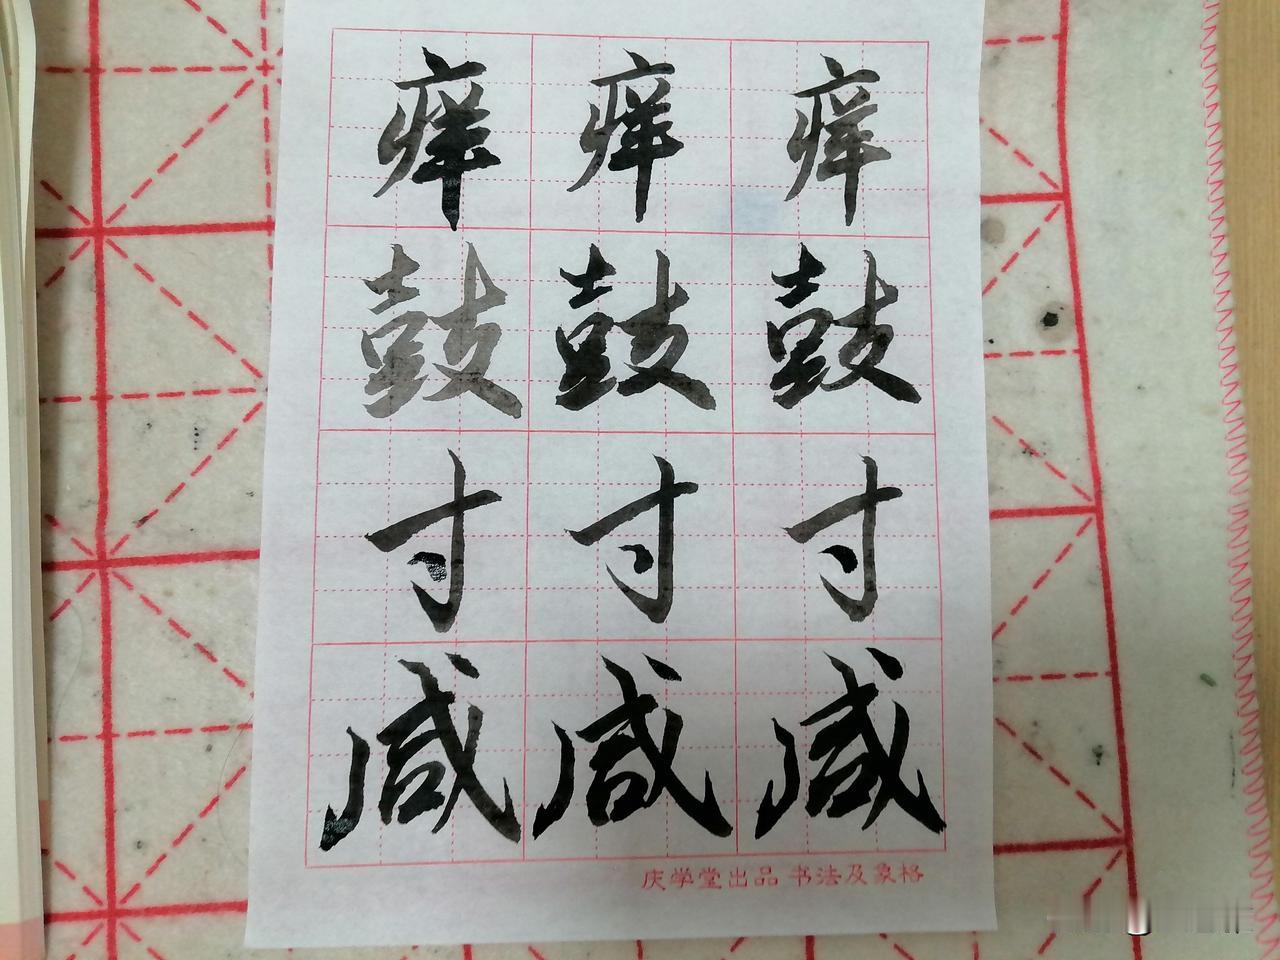 痒 痒 痒
鼓 鼓 鼓
寸 寸 寸
咸 咸 咸
庆学堂出品 书法及象格